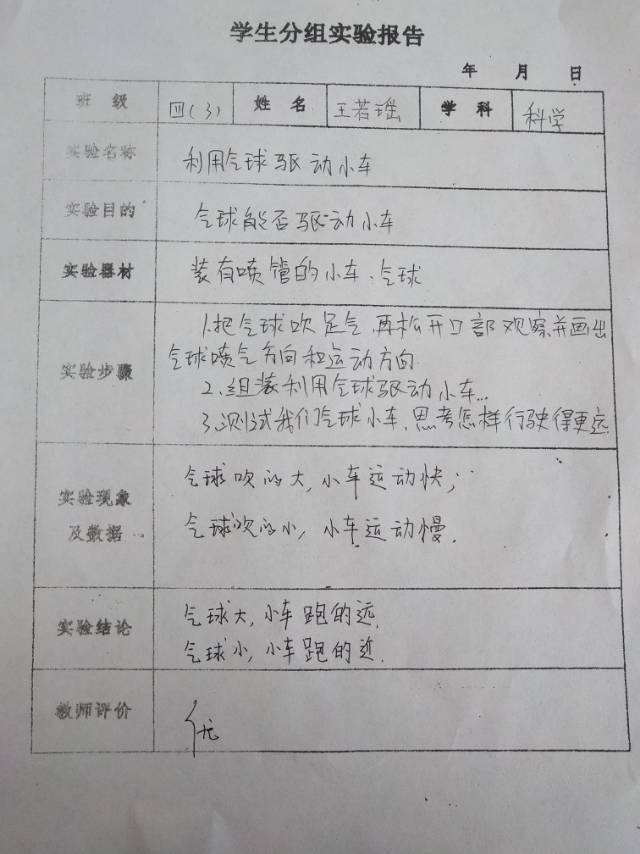 学生分组实验报告
年 月 日
班 级 四(3) 姓 名 王若瑶 学 科 科学
实验名称 利用气球驱动小车
实验目的 气球能否驱动小车
实验器材 装有喷管的小车、气球
实验步骤
1.把气球吹足气,再松开口部观察并画出
气球喷气方向和运动方向
2.组装利用气球驱动小车...
3.测试我们气球小车,思考怎样行驶得更远
实验现象
及数据
气球吹的大,小车运动快;
气球吹的小,小车运动慢.
实验结论
气球大,小车跑的远.
气球小,小车跑的近.
教师评价 优